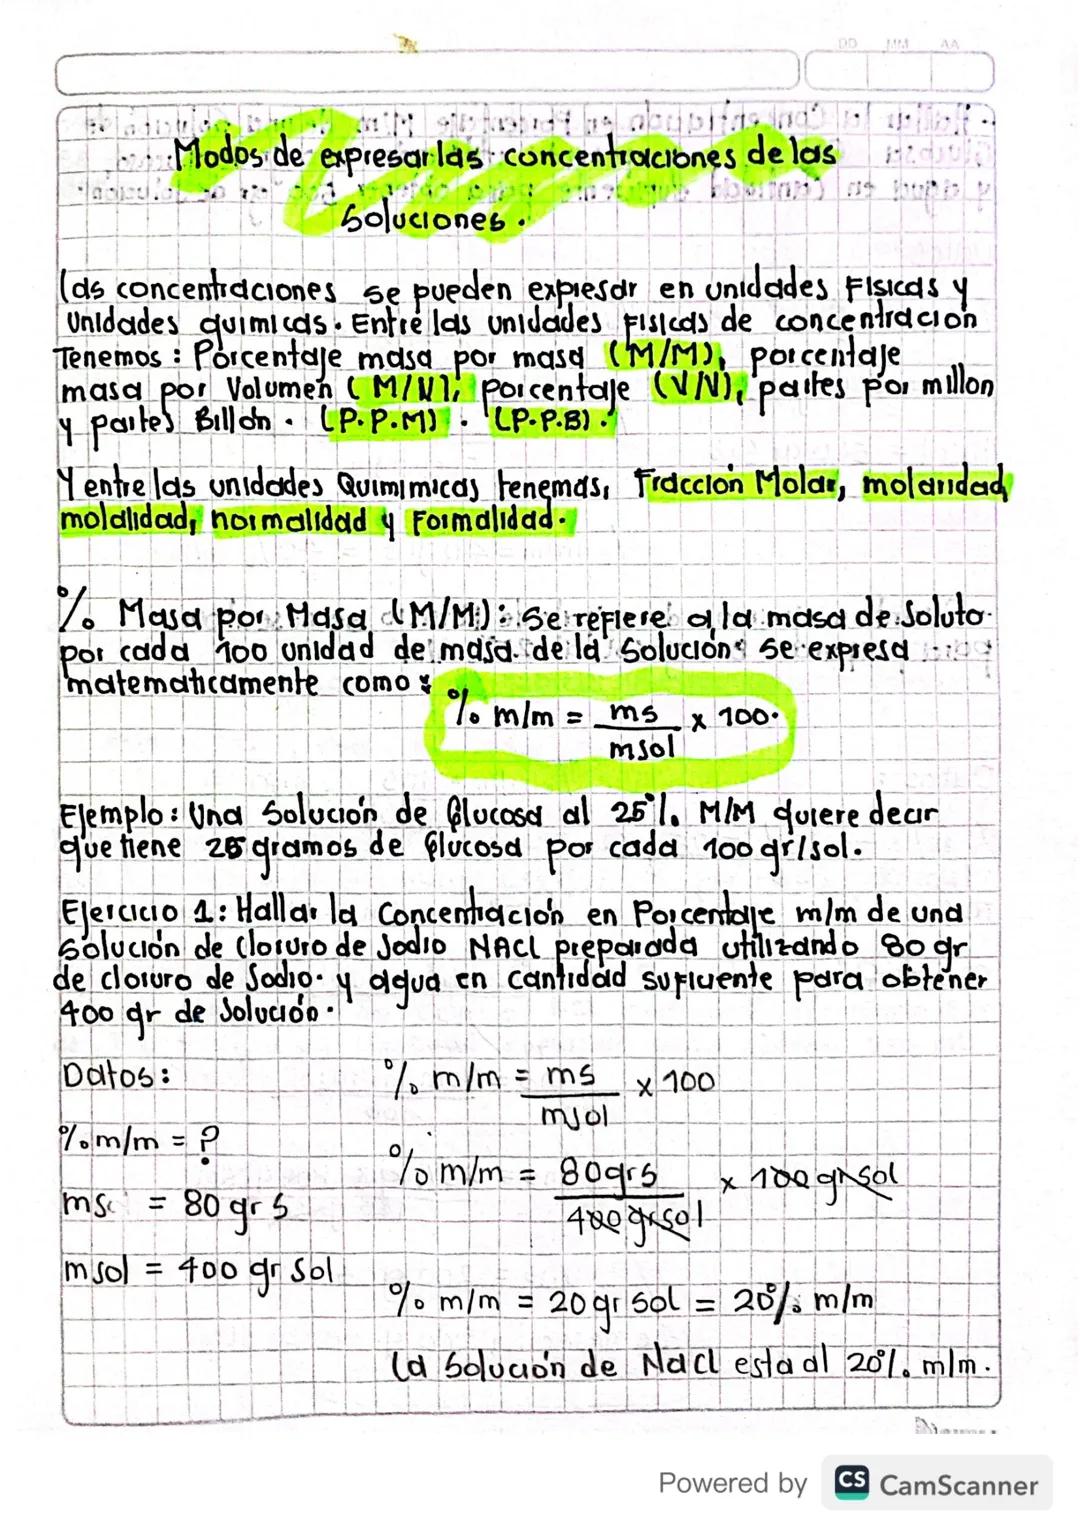 DD MM AA
Modos de expresar las concentraciones de las
Soluciones.
las concentraciones se pueden expresar en unidades Fisicas y
Unidades quimicas. Entre las unidades Fisicas de concentracion
Tenemos: Porcentaje masa por masa (M/M), porcentaje
masa por Volumen (M/V), porcentaje (V/V), partes por millon
y partes Billon. (P.P.M). (P.P.B).
Y entre las unidades Quimimicas tenemas, Fracción Molar, molaridad,
molalidad, normalidad y Formalidad.
% Masa por Masa (M/M): Se refiere a la masa de Soluto
por cada 100 unidad de masa de la Solución: Se expresa
matematicamente como:
% m/m = ms/msol x 100.
Ejemplo: Una Solución de Glucosa al 25% M/M quiere decir
que tiene 25 gramos de Glucosa por cada 100 gr/sol.
Ejercicio 1: Hallar la Concentración en Porcentaje m/m de una
Solución de Cloruro de Sodio NACL preparada utilizando 80 gr
de cloruro de Sodio. y agua en cantidad suficiente para obtener
400 gr de Solución.
Datos:
% m/m = ?
ms = 80 grs
msol = 400 gr Sol
% m/m = ms/msol x 100
% m/m = 80grs/400 gr sol x 100 gr sol
% m/m = 20 gr sol = 20% m/m
La Solución de Nacl esta al 20% m/m.
Powered by CS CamScanner